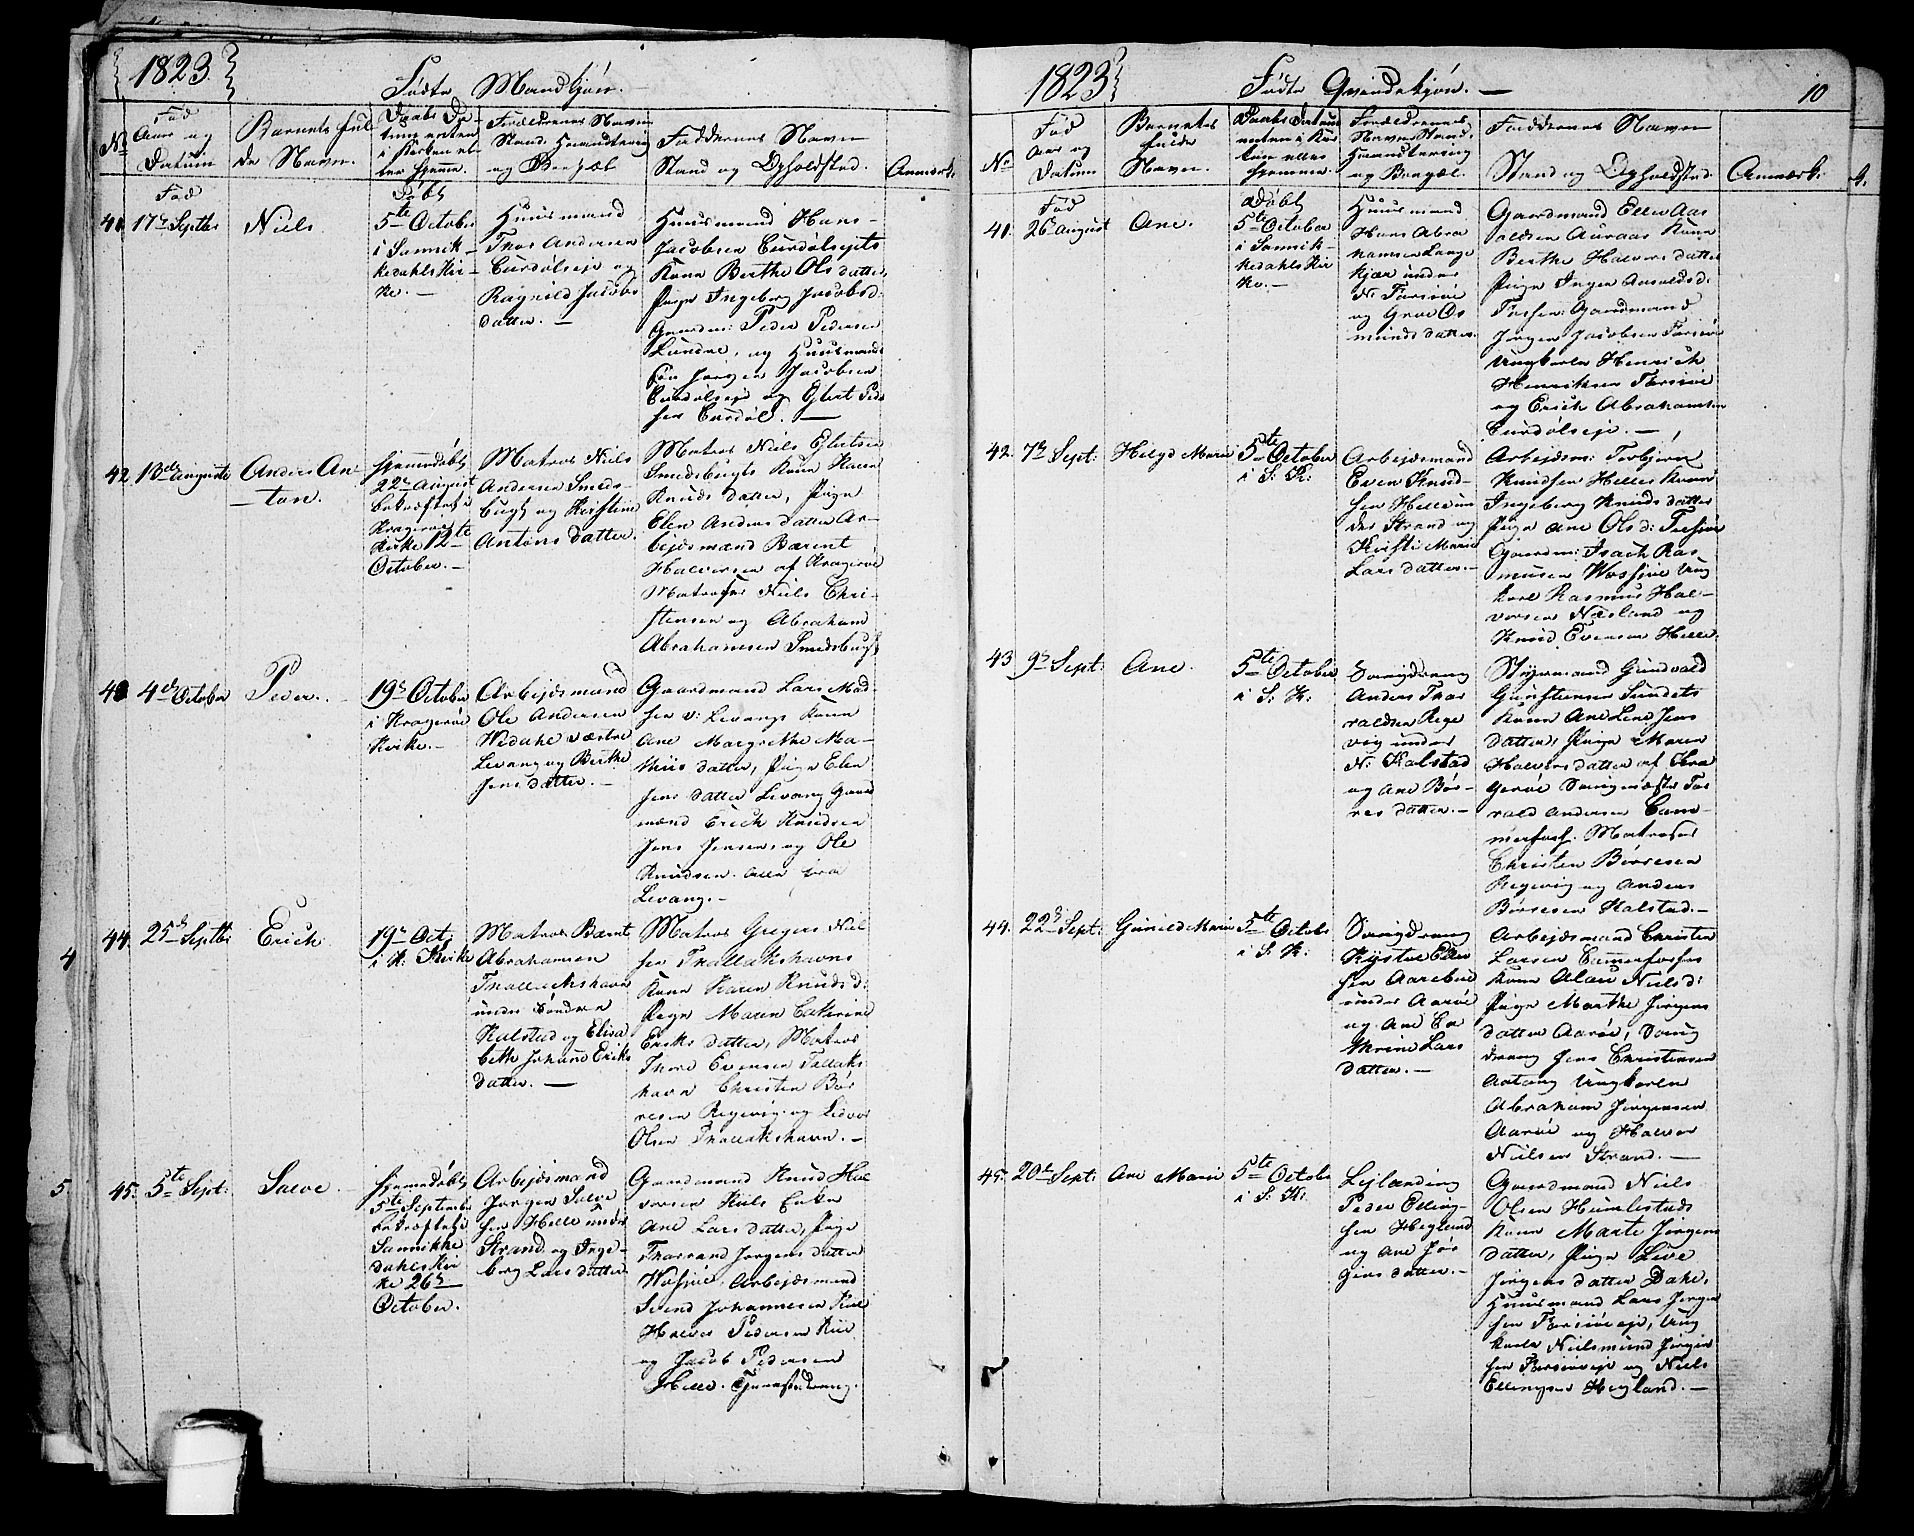 1823.
Födte Mandkjön. —
No
Föd
Aar og
Datum
Barnets ful
de Navn.
Daabs Da-
tum enten
i Kirken el-
ler hjemme.
Forældrenes Navn
Stand, Haandtering
og Bopæl
Faddernes Navn
Stand og Opholdsted.
Anmærk:
Föd
41. 17de Septbr
Niels.
Döbt
5te October
i Sannik-
kedahls Kir-
ke. —
Huusmand
Thor Andersen
Eurdölseje og
Ragnild Jacobs
datter. —
Huusmand Hans
Jacobsen Eurdölsejets
Kone Berthe Ols datter,
Pige Ingeborg Jacobsd:
Gaardm: Peder Pedersen
Lundne, og Huusmands
Sön Jørgen Jacobsen
Eurdölseje og Glut Peder
sen Eurdöl. —
42. 13de Auguste
Anders An-
ton.
hjemmedöbt
22de August
bekræftet i
Kragerøe
Kirke 12te
October. —
Matros Niels
Andersen Smeds-
bugt og Kirstine
Antons datter.
Matros Niels Glutsen
Smedsbugts Kone Karen
Knuds datter, Pige
Elen Anders datter Ar-
bejdsmænd Bærent
Halvorsen af Kragerøe
Matroser Niels Chri-
stensen og Abraham
Abrahamsen Smedsbugt
43 4de October
Peder.
19de October
i Kragerøe
Kirke. —
Arbejdsmand
Ole Andersen
Wedahl væstre
Levang og Berthe
Jens datter. —
Gaardmand Lars Mad-
sen v: Levangs Kone
Ane Margrethe Ma-
thiis datter, Pige Elen
Jens datter Levang Gaard
mænd Erich Knudsen
Jens Jensen og Ole
Knudsen. alle fra
Levang. —
44. 25de Septbr:
Erich
19de Oct:
i K: Kirke
Matros Bærnt
Abrahamsen
Thallakshavn
under söndre
Kalstad og Elisa
beth Johane Eriks
datter. —
Matros Gregers Niel
sen Thallakshavns
Kone Karen Knudsd:
Pige Maren Cathrine
Eriks datter, Matros
Thore Evensen Tallaks
havn Christen Bör
resen Regevig og Sidvor
Olsen Thallakshavn. —
45. 5te Sept:
Salve. —
hjemmedöbt
5te September
bekræftet i
Sannikke
dahls Kir
ke 26de
October.
Arbejdsmand
Jørgen Salve
sen Helle under
Strand og Inge-
borg Lars datter
Gaardmand Knud Hal
vorsen Kiils Enke
Ane Lars datter, Pige
Thorrand Jørgens datter
Wosjöe. Arbejdsmænd
Svend Johannesen Kiil
Halvor Pedersen Kiil
og Jacob Pedersen
Helle.
4
5
1823
Födte Qvindekjön. —
10
No
Föd
Aar og
Datum
Barnets
fulde
Navn.
Daabs Datum
enten i Kir
ken eller
hjemme.
Forældrenes
Navn Stand,
Haandtering
og Bopæl.
Faddernes Navn
Stand og Opholdsted.
Anmærk:
Föd
41. 26de August
Ane.
Döbt
5te October
i Sannik-
kedahls Kir
ke. —
Huusmand
Hans Abra
hamsen Lange
kjær under
N: Farsiøe
og Groe Os
munds datter.
Gaardmand Ellev Aas
oldsen Auraas Kone
Berthe Halvors datter
Pige Inger Aasoldsd.
Gaardmand
Jørgen Jacobsen Farsiøe
Ungkarle Henrich
Henriksen Farsiøe
og Erich Abrahamsen
Eurdölseje. —
42. 7de Sept:
Helge Marie
5te October
i S: K:
Arbejdsmand
Even Knud
sen Helle un
der Strand og
Kirsti Marie
Lars datter. —
Arbejdsm: Torbjörn
Knudsen Helles Kone
Ingeborg Knuds datter
Pige Ane Olsd: Farsiøe
Gaardm: Isach Ras-
musen Wosjöe Ung
karl Rasmus Hal-
vorsen Næslund og
Knud Evensen Helle.
43 9de Sept:
Ane.
5te October
i S: K:
Sougdreng
Anders Thor
valdsen Rege
vig under
N: Kalstad
og Ane Bör-
res datter. —
Styrmand Gunvald
Gunstensen Sundets
Kone Ane Lene Jens
datter, Pige Maren
Halvors datter af Kra
gerøe Sougmæster Tor
vald Andersen Cam-
merfoss. Matroser
Christen Börresen
Regevig og Anders
Börsesen Kalstad. —
44. 22de Sept:
Gunild Marie
5te October
i S: K:
Sougdreng
Kjöstvel Ellev
sen Aarebue
under Aarøe
og Ane Ca
thrine Lars
datter. —
Arbejdsmand Christen
Larsen Camerfosses
Kone Alau Nielsd:
Pige Marthe Jørgens
datter Aarøe, Soug
dreng Jens Christensen
Aatang Ungkarle
Abraham Jørgensen
Aarøe og Halvor
Nielsen Strand. —
45. 20de Sept:
Ane Marie
5te October
i S: K:
Lejlænding
Peder Elling-
sen Heglund
og Ane Jør
gens datter. —
Gaardmand Niels
Olsen Humlestads
Kone Marte Jørgens
datter, Pige Live
Jørgens datter Dahl,
Huusmand Lars Jørgen
sen Farsiøeeje, Ung
karle Nielsmund Jørgen
sen Farsiøeeje og Niels
Ellingsen Heglund. —